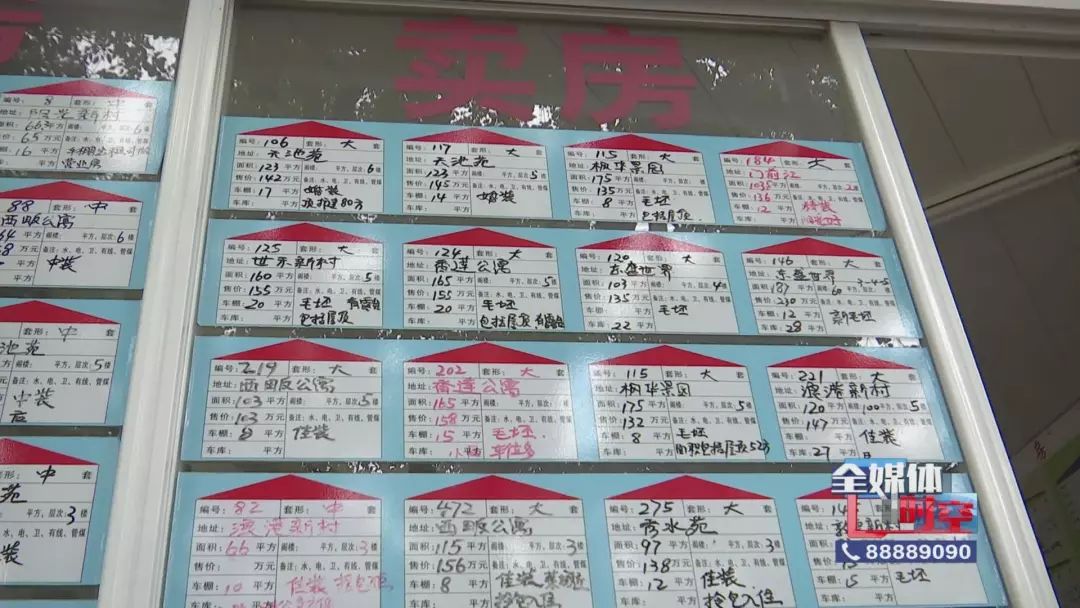 卖房
编号: 8 套形: 中 套
地址: 阳光新村
面积: 66 平方 阁楼: 平方、层次: 6 楼
售价: 65 万元 备注: 水、电、卫、有线、管煤
车棚: 16 平方
营业房
编号: 106 套形: 大 套
地址: 天池苑
面积: 123 平方 阁楼: 平方、层次: 6 楼
售价: 142 万元 备注: 水、电、卫、有线、管煤
车棚: 17 平方 婚装
车库: 平方 顶搭建80方
编号: 117 套形: 大 套
地址: 天池苑
面积: 123 平方 阁楼: 平方、层次: 5 楼
售价: 145 万元 备注: 水、电、卫、有线、管煤
车棚: 14 平方 婚装
车库: 平方
编号: 115 套形: 大 套
地址: 枫华景园
面积: 175 平方 阁楼: 平方、层次: 楼
售价: 135 万元 备注: 水、电、卫、有线、管煤
车棚: 8 平方 毛坯
车库: 平方 包括屋顶
编号: 184 套形: 大 套
地址: 门前江
面积: 103 平方 阁楼: 平方、层次: 2 楼
售价: 136 万元 备注: 水、电、卫、有线、管煤
车棚: 12 平方 精装
车库: 平方
88 套形: 中 套
西畈公寓
64 平方 阁楼: 平方、层次: 6 楼
万元 备注: 水、电、卫、有线、管煤
平方 中装
平方
编号: 125 套形: 大 套
地址: 世东新村
面积: 160 平方 阁楼: 平方、层次: 5 楼
售价: 155 万元 备注: 水、电、卫、有线、管煤
车棚: 20 平方 毛坯 有露台
车库: 平方 包括屋顶
编号: 124 套形: 大 套
地址: 香莲公寓
面积: 165 平方 阁楼: 平方、层次: 5 楼
售价: 155 万元 备注: 水、电、卫、有线、管煤
车棚: 20 平方 毛坯
车库: 平方 包括屋顶 有露台
编号: 120 套形: 大 套
地址: 东盛世界
面积: 103 平方 阁楼: 平方、层次: 4 楼
售价: 135 万元 备注: 水、电、卫、有线、管煤
车棚: 平方 毛坯
车库: 22 平方
编号: 146 套形: 大 套
地址: 东盛世界
面积: 187 平方 阁楼: 60 平方、层次: 3-4-5 楼
售价: 230 万元 备注: 水、电、卫、有线、管煤
车棚: 12 平方 新毛坯
车库: 28 平方
套形: 中 套
池苑
平方 阁楼: 平方、层次: 5 楼
万元 备注: 水、电、卫、有线、管煤
平方 中装
编号: 219 套形: 大 套
地址: 西畈公寓
面积: 103 平方 阁楼: 平方、层次: 5 楼
售价: 103 万元 备注: 水、电、卫、有线、管煤
车棚: 8 平方 佳装
车库: 平方
编号: 202 套形: 大 套
地址: 香莲公寓
面积: 165 平方 阁楼: 平方、层次: 5 楼
售价: 158 万元 备注: 水、电、卫、有线、管煤
车棚: 15 平方 毛坯.
车库: 平方 车位多
编号: 115 套形: 大 套
地址: 枫华景园
面积: 175 平方 阁楼: 平方、层次: 5 楼
售价: 132 万元 备注: 水、电、卫、有线、管煤
车棚: 8 平方 毛坯
车库: 平方 面积包括屋顶52方
编号: 221 套形: 大 套
地址: 澳港新村
面积: 120 平方 阁楼: 100 平方、层次: 5 楼
售价: 147 万元 备注: 水、电、卫、有线、管煤
车棚: 平方 佳装
车库: 27 平方
套形: 中 套
苑
平方 阁楼: 平方、层次: 3 楼
万元 备注: 水、电、卫、有线、管煤
平方
编号: 82 套形: 中 套
地址: 澳港新村
面积: 66 平方 阁楼: 平方、层次: 3 楼
售价: 万元 备注: 水、电、卫、有线、管煤
车棚: 10 平方 佳装 拎包住
车库:
编号: 472 套形: 大 套
地址: 西畈公寓
面积: 115 平方 阁楼: 平方、层次: 3 楼
售价: 156 万元 备注: 水、电、卫、有线、管煤
车棚: 8 平方 佳装
车库: 平方 拎包入住
编号: 275 套形: 大 套
地址: 秀水苑
面积: 97 平方 阁楼: 平方、层次: 3 楼
售价: 138 万元 备注: 水、电、卫、有线、管煤
车棚: 12 平方 佳装.
车库: 平方 拎包入住
编号: 套形: 大 套
地址: 新村
面积: 115
售价:
车棚: 15 平方 毛坯
车库: 平方
全媒体
时空
88889090